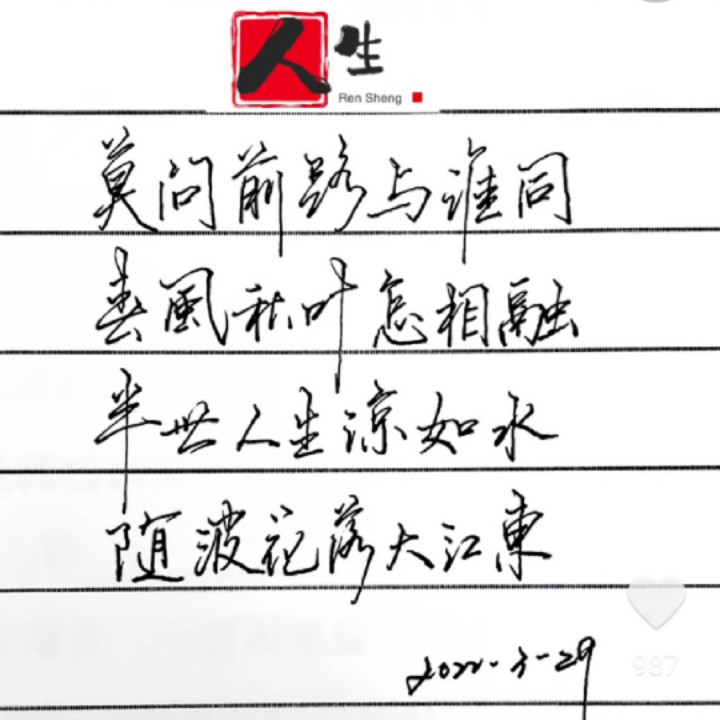 人生
Ren Sheng
莫问前路与谁同
春風秋叶怎相融
半世人生凉如水
随波花落大江東
2022-3-29
987